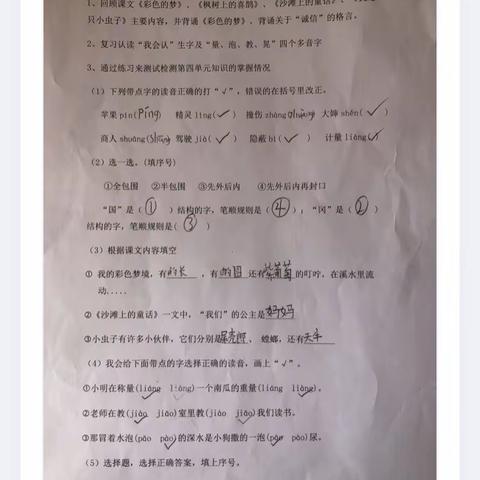 1、回顾课文《彩色的梦》、《枫树上的喜鹊》、《沙滩上的童话》、《
只小虫子》主要内容，并背诵《彩色的梦》、背诵关于“诚信”的格言。
2、复习认读“我会认”生字及“量、泡、教、晃”四个多音字
3、通过练习来测试检测第四单元知识的掌握情况
（1）下列带点字的读音正确的打“√”，错误的在括号里改正。
苹果pin(píng) 精灵líng(√) 撞伤zhàng(zhuàng) 大婶shěn(√)
商人shuāng(shāng) 驾驶jià(√) 隐蔽bì(√) 计量liàng(√
（2）选一选。（填序号）
①全包围 ②半包围 ③先外后内 ④先外后内再封口
“国”是（①）结构的字，笔顺规则是（④）；“冈”是（②）
结构的字，笔顺规则是（③）
（3）根据课文内容填空
① 我的彩色梦境，有的长，有的圆还有紫葡萄的叮咛，在溪水里流
动.....
②《沙滩上的童话》一文中，“我们”的公主是妈妈
③小虫子有许多小伙伴，它们分别是屎壳郎、螳螂，还有天牛
（4）我会给下面带点的字选择正确的读音，画上“√”。
①小明在称量(liáng liàng)一个南瓜的重量(liáng liàng)。
②老师在教(jiào jiāo)室里教(jiào jiāo)我们读书。
③那冒着水泡(pāo pào)的深水是小狗撒的一泡(pāo pào)尿。
（5）选择题，选择正确答案，填上序号。